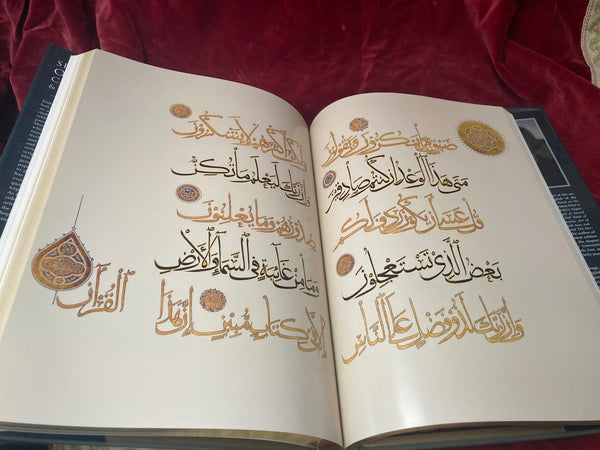 ضيق مما يمكرون ويقولون
متى هذا الوعد إن كنتم صدقين
قل عسى أن يكون ردف لكم
بعض الذي تستعجلون
وإن ربك لذو فضل على الناس
ولكن أكثرهم لا يشكرون
وإن ربك ليعلم ما تكن
صدورهم وما يعلنون
وما من غائبة في السماء والأرض
إلا في كتاب مبين إن هذا
القرآن